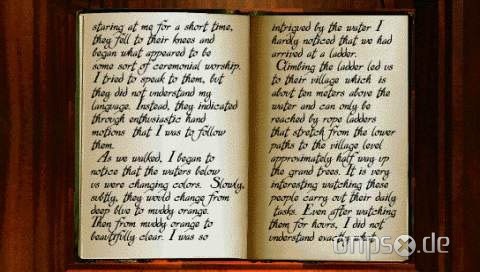 staring at me for a short time,
they fell to their knees and
began what appeared to be
some sort of ceremonial worship.
I tried to speak to them, but
they did not understand my
language. Instead, they indicated
through enthusiastic hand
motions that I was to follow
them.
As we walked, I began to
notice that the waters below
us were changing colors. Slowly,
subtly, they would change from
deep blue to muddy orange.
Then from muddy orange to
beautifully clear. I was so
intrigued by the water I
hardly noticed that we had
arrived at a ladder.
Climbing the ladder led us
to their village which is
about ten meters above the
water and can only be
reached by rope ladders
that stretch from the lower
paths to the village level
approximately half way up
the grand trees. It is very
interesting watching these
people carry out their daily
tasks. Even after watching
them for hours, I did not
understand exactly
onpsx.de